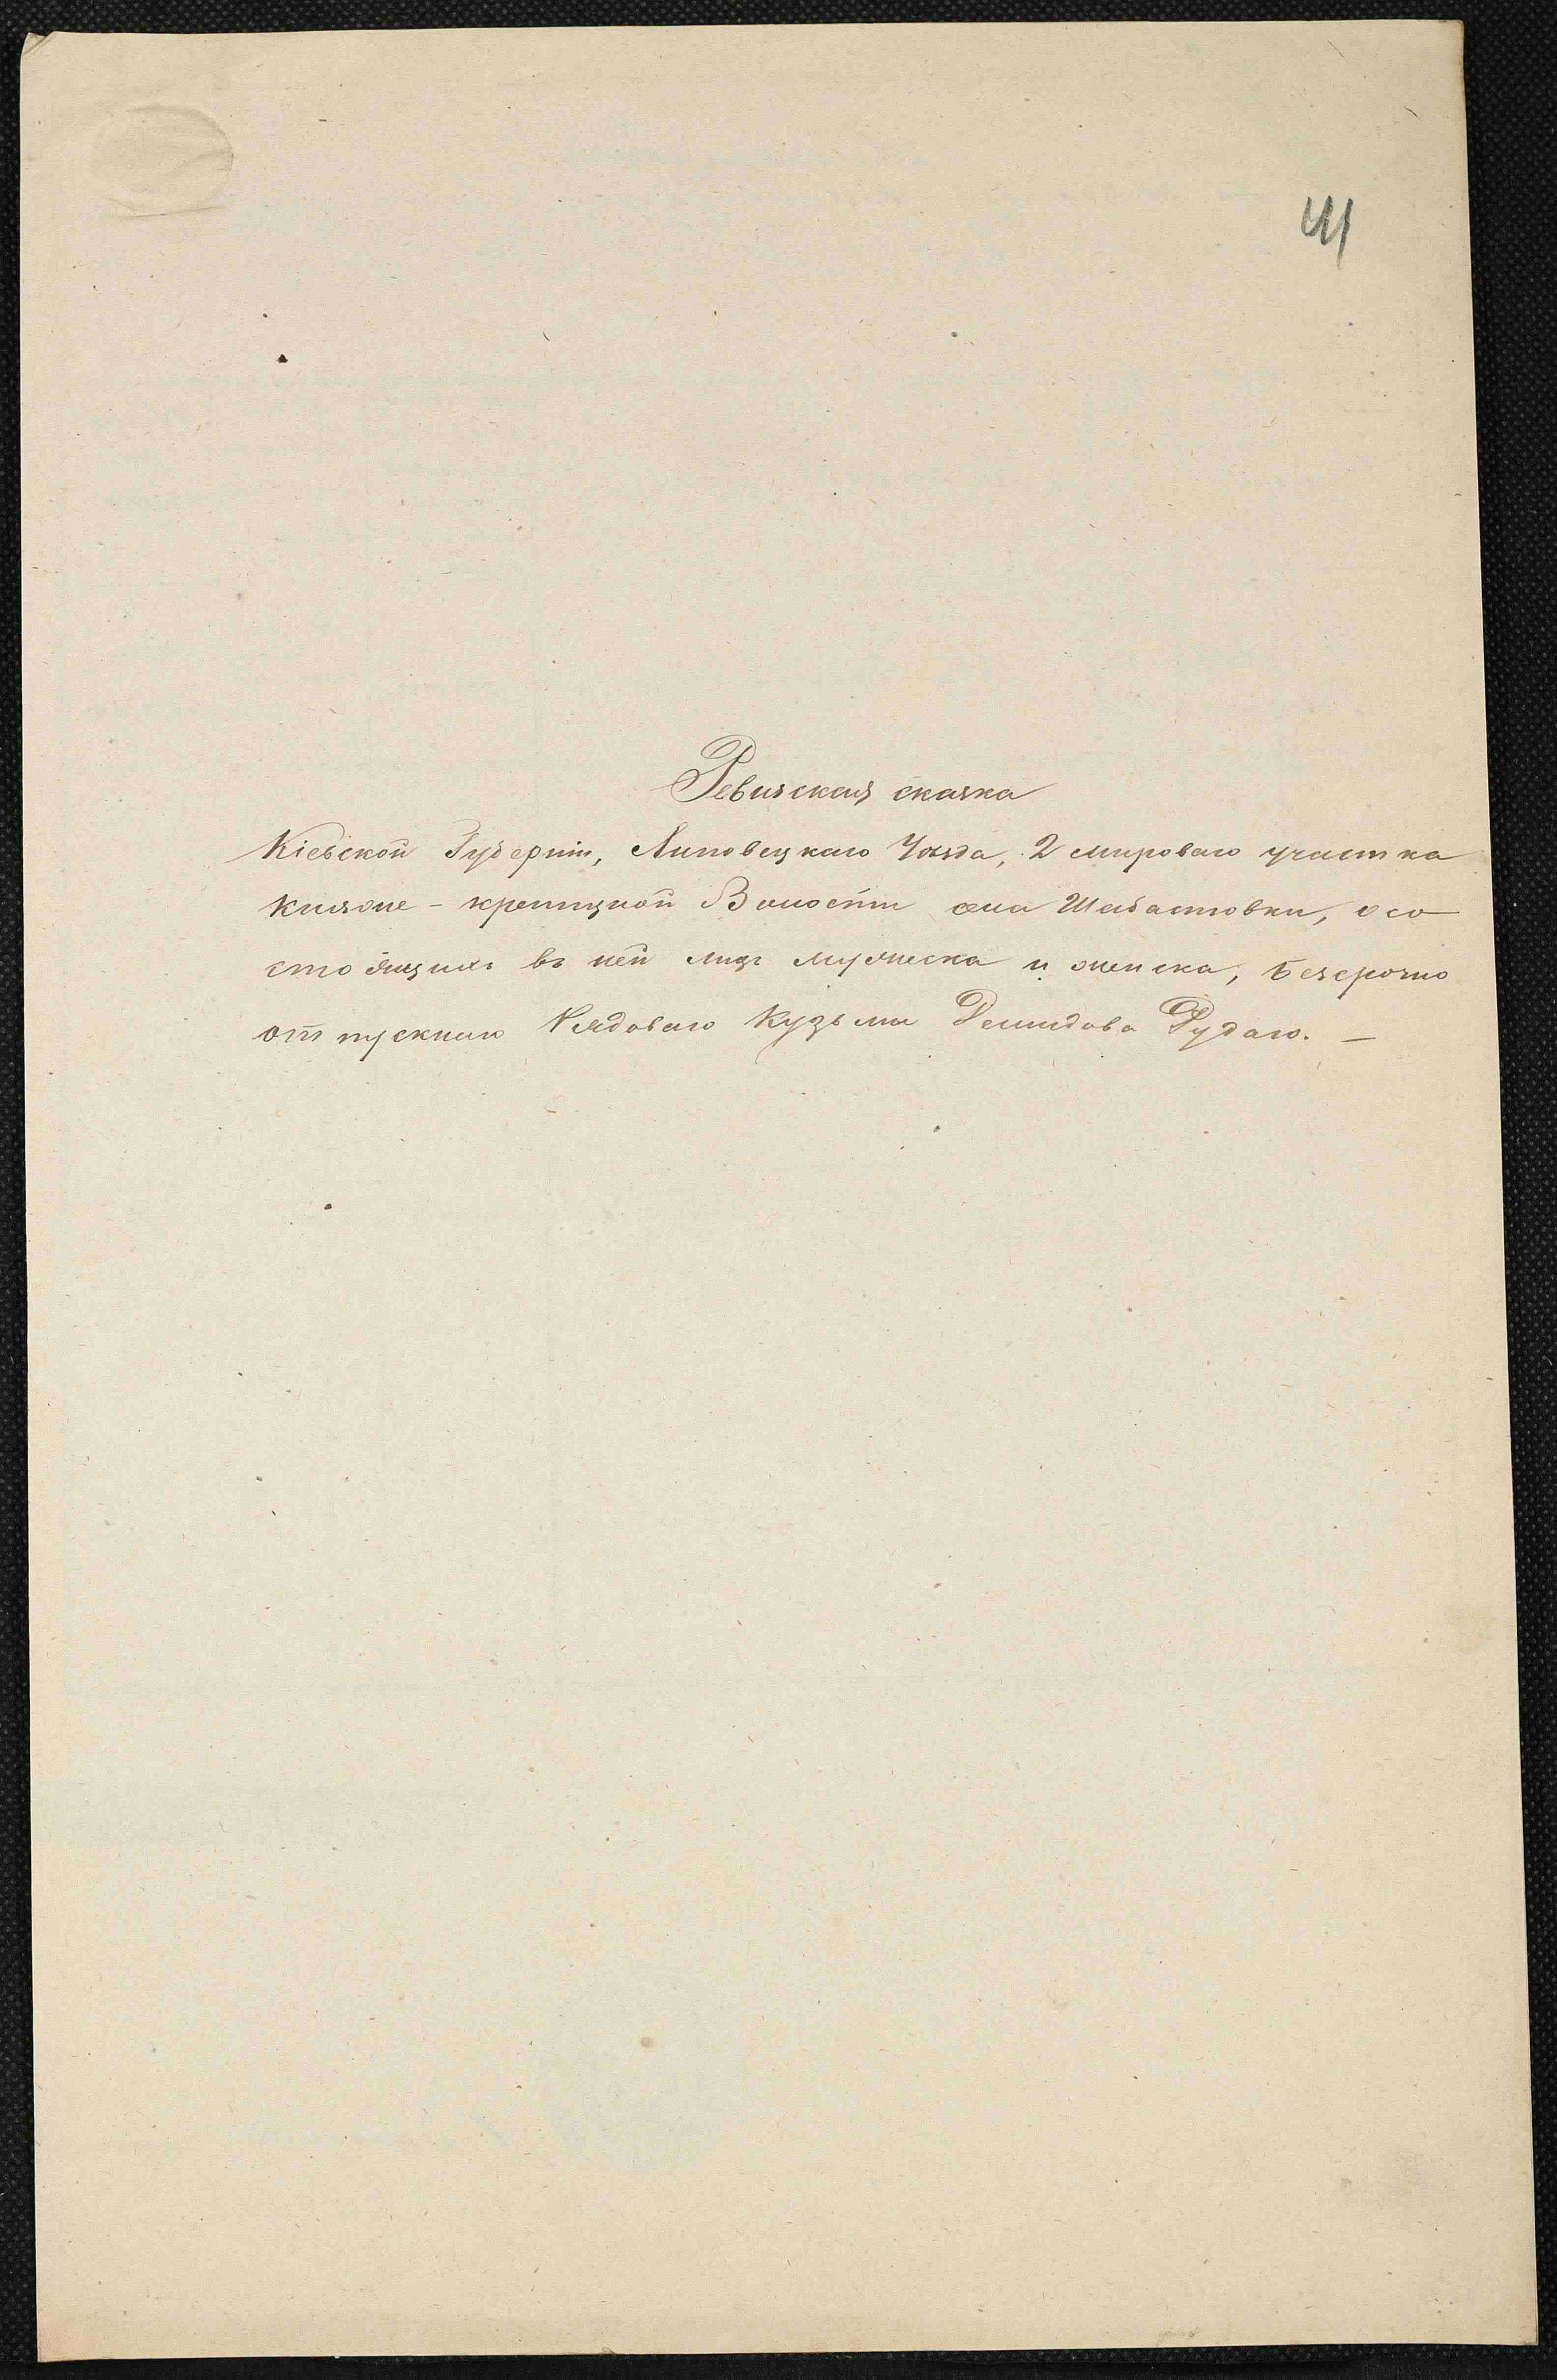 41
Ревизская сказка
Кіевской Губерніи, Липовецкаго Уѣзда, 2 мироваго участка
Княже-крепицкой Волости села Шабастовки, о со
стоящихъ въ ней лицъ мужеска и женска, безсрочно
отпускнаго Рядоваго Кузьмы Демидова Рудаго. —